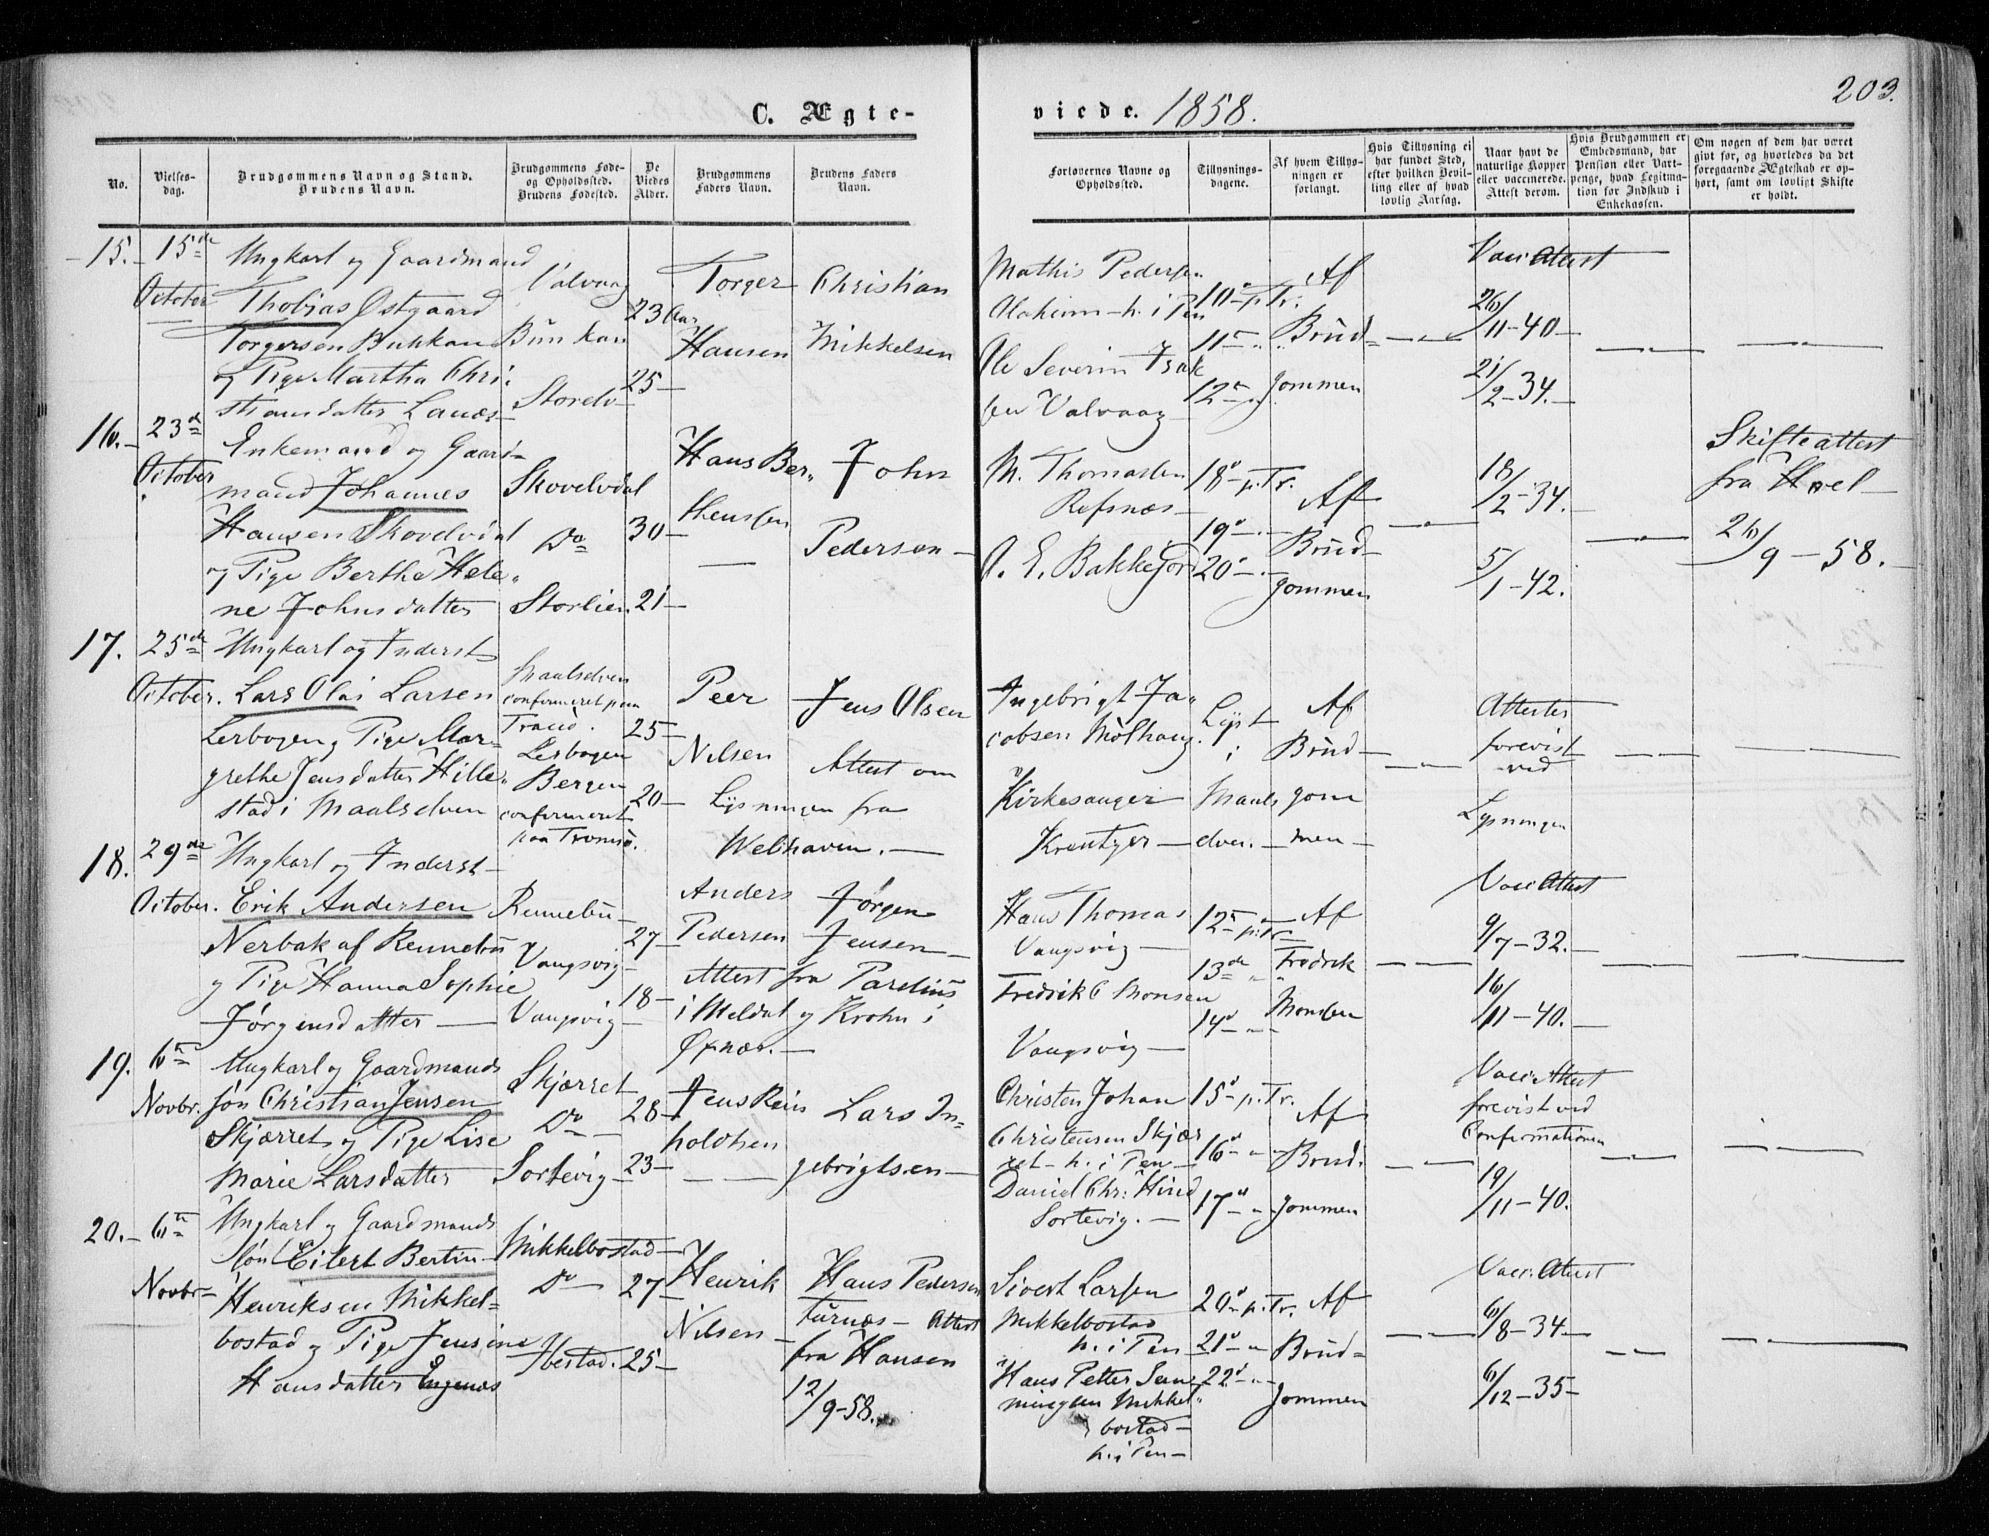 203.
C. Ægte-
viede. 1858.
No.
Vielses-
dag.
Brudgommens Navn og Stand.
Brudens Navn.
Brudgommens Føde-
og Opholdssted.
Brudens Fødested.
De
Viedes
Alder.
Brudgommens
Faders Navn.
Brudens Faders
Navn.
Forlovernes Navne og
Opholdssted.
Tillysnings-
dagene.
Af hvem Tillys-
ningen er
forlangt.
Hvis Tillysning ei
har fundet Sted,
efter hvilken Bevil-
ling eller af hvad
lovlig Aarsag.
Naar havt de
naturlige Kopper
eller vaccinerede.
Attest derom.
Hvis Brudgommen er
Embedsmand, har
Pension eller Vart-
penge, hvad Legitima-
tion for Indskud i
Enkekassen.
Om nogen af dem har været
givt før, og hvorledes da det
foregaaende Ægteskab er op-
hørt, samt om lovligt Skifte
er holdt.
15. 15de
October
Ungkarl og Gaardmand
Thobias Østgaard
Torgersen
og Pige Martha Chri-
stiansdatter
Valvaag
Storelv
23 Aar
25
Torger
Hansen
Christian
Mikkelsen
Mathis Pedersen
h. i Pen
Ole Severin Isak
sen Valvaag
10 p. Tr.
11
12
Af
Brud-
gommen
Vacc. Attest
26/11-40
21/2-34.
16. 23de
October
Enkemand og Gaard-
mand Johannes
Hansen Skovelvdal
og Pige Berthe Hele-
ne Johnsdatter
Skovelvdal
Do
Storlien
30
21
Hans Ber-
thensen
John
Pedersen
M. Thomassen
Refsnæs
O. E. Bakkejord
18 p. Tr.
19
20
Af
Brud-
gommen
18/2-34.
5/1-42.
Skifteattest
fra
26/9-58.
17. 25de
October.
Ungkarl og Inderst
Lars Olai Larsen
Lerbogen og Pige Mar-
grethe Jensdatter Hille-
stad i Maalselven
Maalselven
confirmeret paa
Tranø.
Lerbogen
Bergen
confirmeret
paa Tromsø.
25
20
Peer
Nilsen
Jens Olsen
Attest om
Lysningen fra
Welhaven.
Ingebrigt Ja-
cobsen Molhaug.
Kirkesanger
Kreutzer
Lyst
i
Maals
elven.
Af
Brud
gom
men
Attester
forevist
ved
Lysningen
18. 29de
October.
Ungkarl og Inderst
Erik Andersen
Nerbak af Rennebu
og Pige Hanna Sophie
Jørgensdatter
Rennebu
Vangsvig
Vangsvig
27
18
Anders
Pedersen
Jørgen
Jensen
Attest fra Parelius
i Meldal og Krohn i
Øxnæs.
Hans Thomas
Vangsvig
Fredrik C Monsen
Vangsvig
12 p. Tr.
13de
14
Af
Fredrik
Monsen
Vacc. Attest
9/7-32.
16/11-40.
19. 6te
Novbr.
Ungkarl og Gaardmands
søn Christian Jensen
Skjærret og Pige Lise
Marie Larsdatter
Skjærret
Do
Sortevig
28
23
Jens Rein
holdtsen
Lars In-
gebrigtsen
Christen Johan
Christensen Skjær
ret h. i Pen
Daniel Chr. Hind
Sortevig.
15 p. Tr.
16
17
Af
Brud-
gommen
Vacc. Attest
forevist ved
Confirmationen
19/11-40.
20. 6te
Novbr.
Ungkarl og Gaardmands
søn Eilert Bertin
Henriksen Mikkel-
bostad og Pige Jensine
Hansdatter
Mikkelbostad
Do
Ibestad.
27
25
Henrik
Nilsen
Hans Pedersen
Attest
fra Hansen
12/9-58.
Sivert Larsen
Mikkelbostad
h. i Pen
Hans Petter
Mikkel-
bostad
h. i Pen
20 p. Tr.
21
22
Af
Brud-
gommen
Vacc. Attest
6/8-34
6/12-35